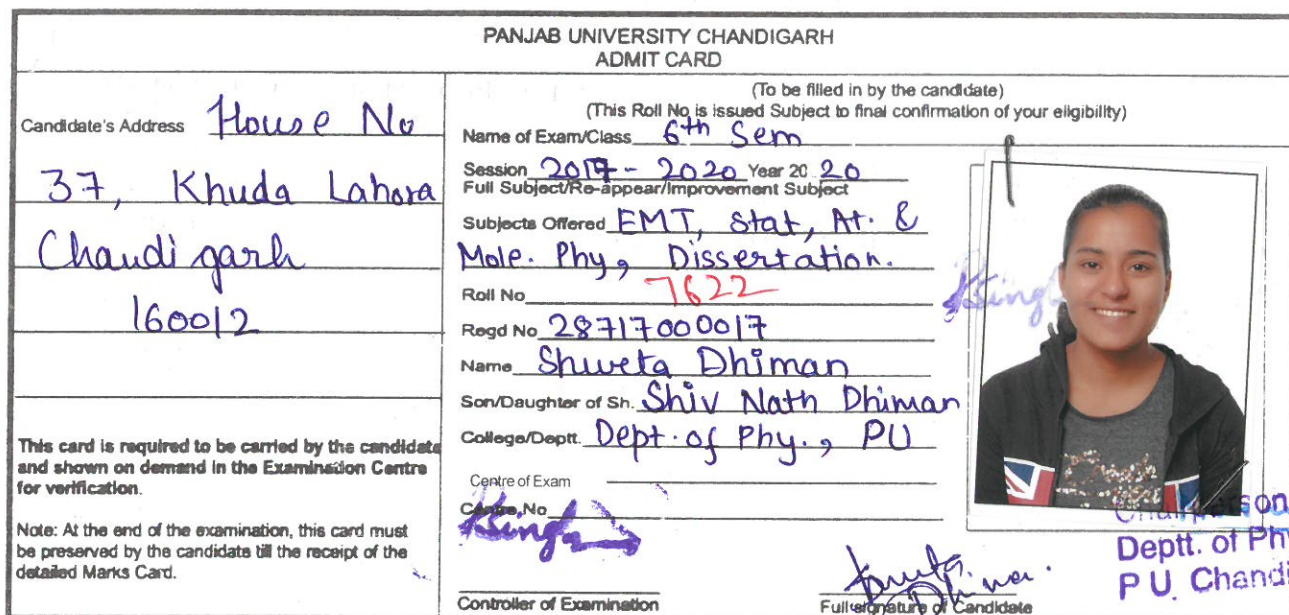 PANJAB UNIVERSITY CHANDIGARH
ADMIT CARD
Candidate's Address House No
37, Khuda Lahora
Chandigarh
160012
This card is required to be carried by the candidate
and shown on demand in the Examination Centre
for verification.
Note: At the end of the examination, this card must
be preserved by the candidate till the receipt of the
detailed Marks Card.
(To be filled in by the candidate)
(This Roll No is issued Subject to final confirmation of your eligibility)
Name of Exam/Class 6th Sem
Session 2017 - 2020 Year 20 20
Full Subject/Re-appear/Improvement Subject
Subjects Offered EMT, Stat, At. &
Mole. Phy, Dissertation.
Roll No 7622
Regd No 28717000017
Name Shweta Dhiman
Son/Daughter of Sh. Shiv Nath Dhiman
College/Deptt. Dept. of Phy., PU
Centre of Exam
Centre No
KSingh
Controller of Examination
Shweta
Dhiman.
Full signature of Candidate
KSingh
Chairperson
Deptt. of Phy
P U. Chandi